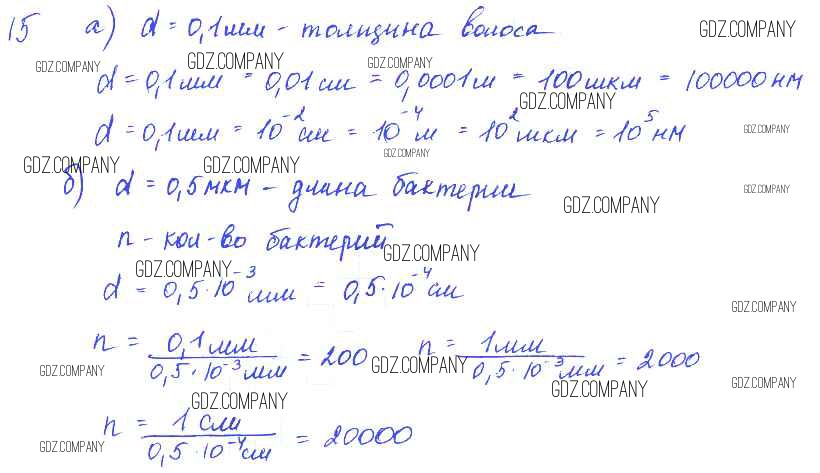 15 а) d = 0,1 мм - толщина волоса GDZ.COMPANY
GDZ.COMPANY GDZ.COMPANY GDZ.COMPANY
d = 0,1 мм = 0,01 см = 0,0001 м = 100 мкм = 100000 нм
GDZ.COMPANY
d = 0,1 мм = 10⁻² см = 10⁻⁴ м = 10² мкм = 10⁵ нм GDZ.COMPANY
GDZ.COMPANY GDZ.COMPANY GDZ.COMPANY
б) d = 0,5 мкм - длина бактерии GDZ.COMPANY
GDZ.COMPANY
n - кол-во бактерий GDZ.COMPANY
GDZ.COMPANY
d = 0,5·10⁻³ мм = 0,5·10⁻⁴ см
GDZ.COMPANY
n = 0,1 мм / 0,5·10⁻³ мм = 200 n = 1 мм / 0,5·10⁻³ мм = 2000
GDZ.COMPANY GDZ.COMPANY GDZ.COMPANY
GDZ.COMPANY GDZ.COMPANY
n = 1 см / 0,5·10⁻⁴ см = 20000
GDZ.COMPANY